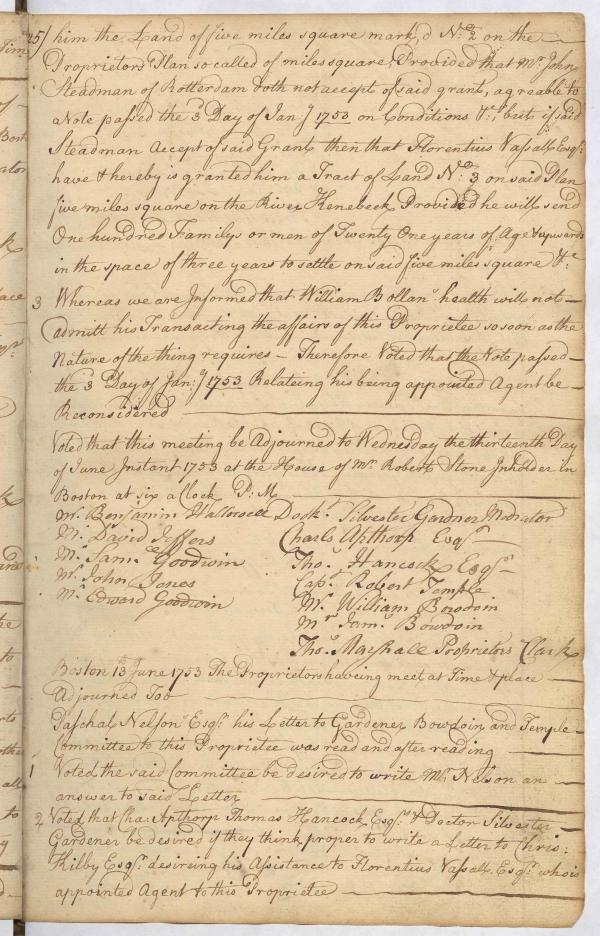 25) him the Land of five miles square mark,d No. 2 on the
Proprietors Plan so called of miles square, Provided that Mr. John
Steadman of Rotterdam doth not accept of said grant, agreable to
a Note passed the 3 Day of Jany 1753 on Conditions &c, but if said
Steadman Accept of said Grant then that Florentius Vassall Esqr.
have & hereby is granted him a Tract of Land No. 3 on said Plan
five miles square on the River Kenebeck Provided he will send
One hundred Familys or men of Twenty One years of Age & upwards
in the space of three years to settle on said five miles square &c.
3 Whereas we are Informed that William Bollans health will not
admitt his Transacting the affairs of this Proprietee so soon as the
Nature of the thing requires – Therefore Voted that the Vote passed
the 3 Day of Jan:y 1753 Relateing his being appointed Agent be
Reconsidered
Voted that this meeting be Adjourned to Wednesday the thirteenth Day
of June Instant 1753 at the House of Mr. Robert Stone Inholder in
Boston at six aClock P:M
Mr. Benjamin Hallowell Dockr. Silvester Gardner Modrator
Mr. David Jeffers Charls Apthorp Esqr
Mr. Saml. Goodwin Thos. Hancock Esqr.
Mr. John Jones Capt. Robert Temple
Mr. Edward Goodwin Mr. William Bowdoin
Mr Jams. Bowdoin
Thos. Marshall Proprietors Clark
Boston 13th June 1753 The Proprietors haveing meet at Time & place
Adjourned Too
Paschal Nelson Esqr. his Letter to Gardener Bowdoin and Temple
Committee to this Proprietee was read and after reading
1 Voted the said Committee be desired to write Mr. Nelson an
answer to said Letter
2 Voted that Cha: Apthorp Thomas Hancock Esqrs. & Doctor Silvester
Gardener be desired if they think proper to write a Letter to Chris:
Kilby Esqr. desireing his Assistance to Florentius Vassall Esqr. who is
appointed Agent to this Proprietee